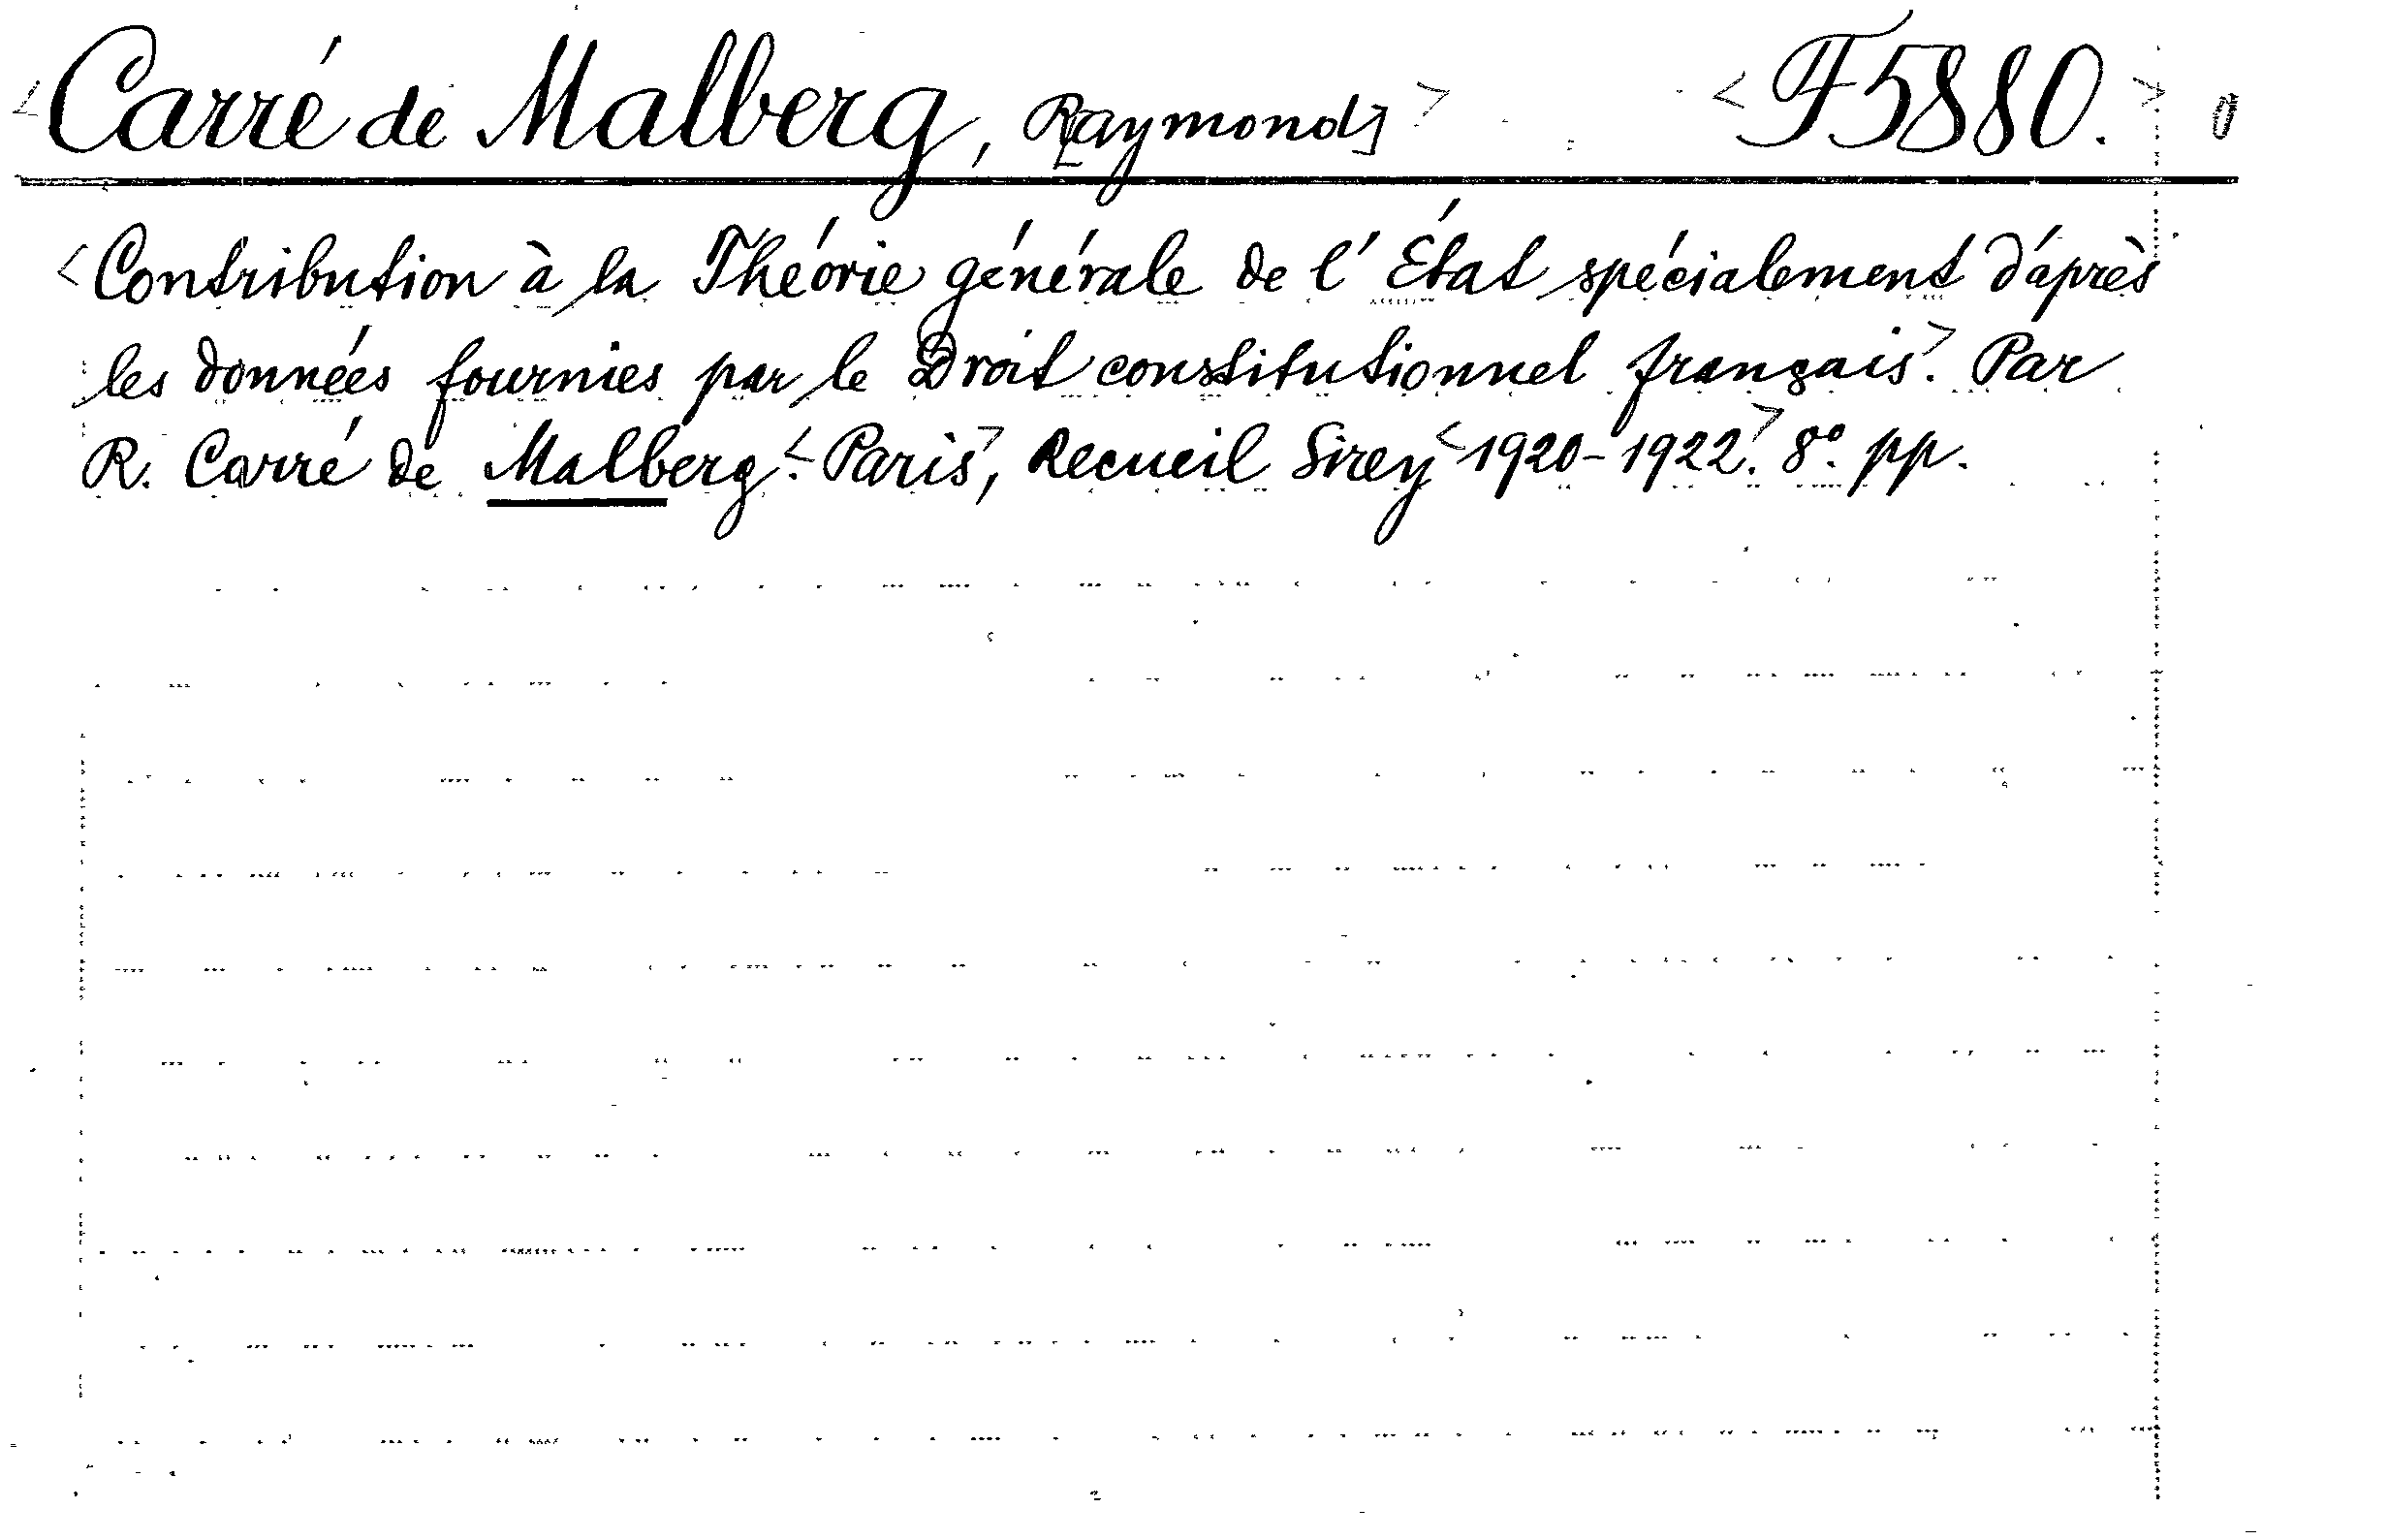 <Carré de Malberg, R[aymond]> <F5880.> 0
<Contribution à la Théorie générale de l'État spécialement d'après
les données fournies par le Droit constitutionnel français>. Par
R. Carré de Malberg.<-Paris>, Recueil Sirey <1920-1922>. 8°. pp.